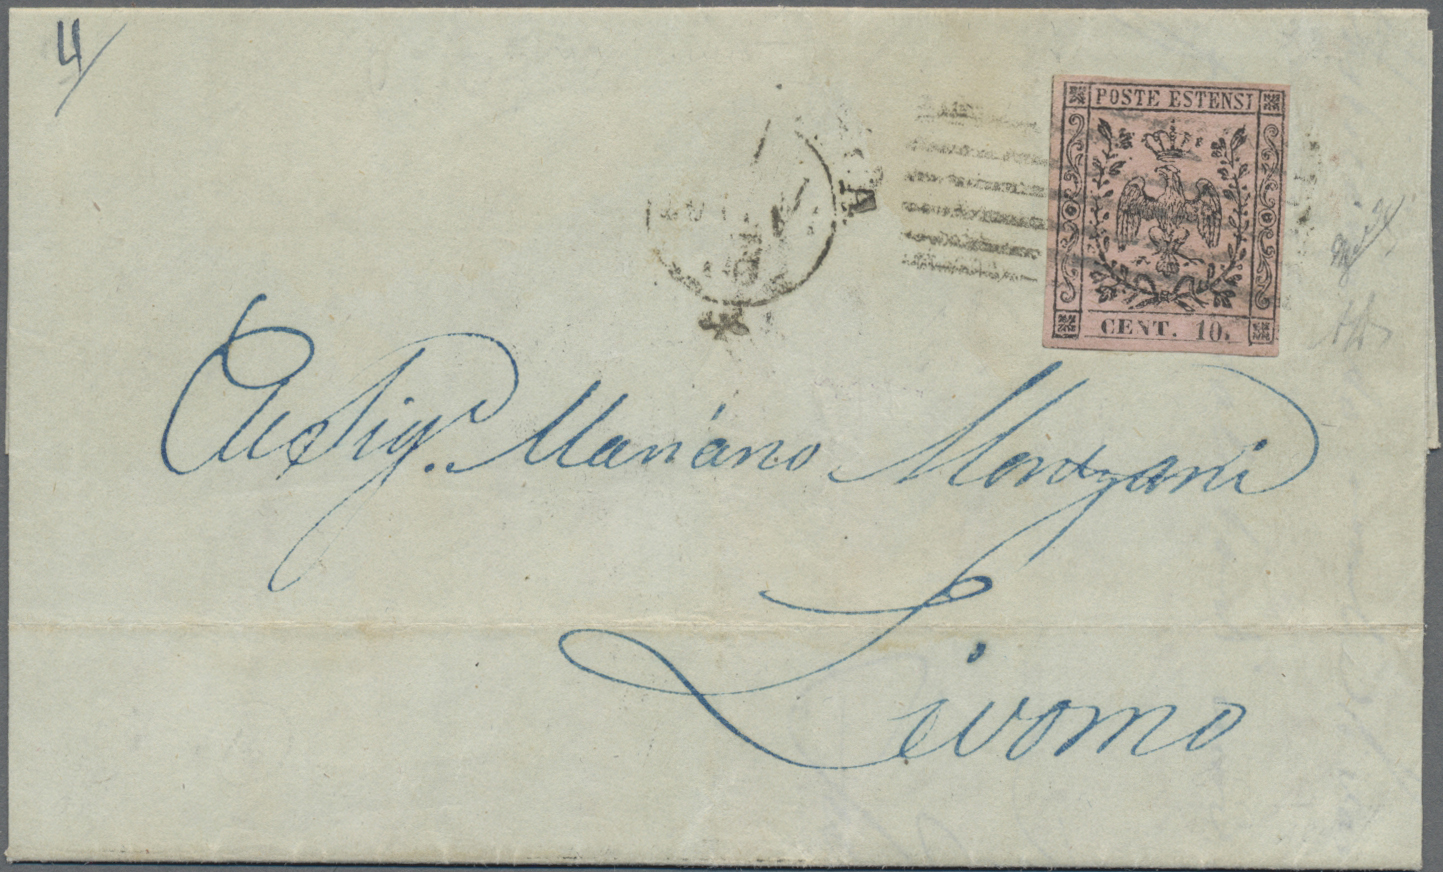 POSTE ESTENSI
CENT. 10.
Al Sigr. Mariano Montzani
Livorno